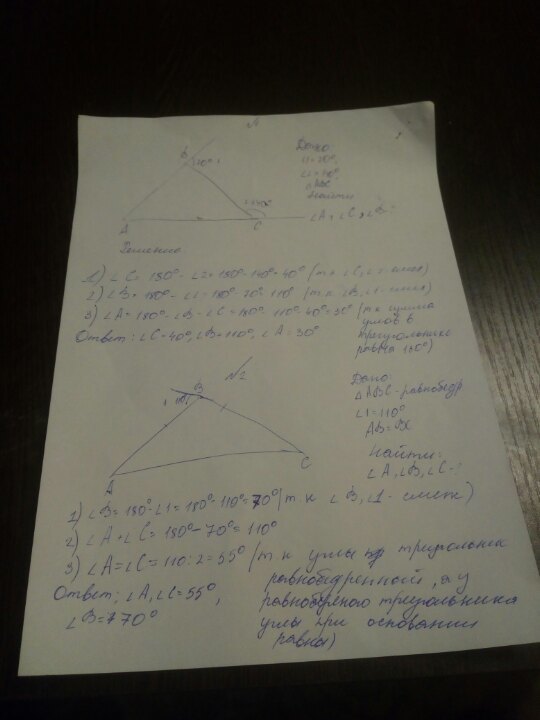 B
70°
1
Дано:
∠1=70°,
△ABC
Найти
∠A, ∠C, ∠B-?
A
C
Решение
1) ∠C = 180°-∠2=180°-140°=40° (т.к ∠C, ∠2-смеж)
2) ∠B=180°-∠1=180°-70°=110° (т.к. ∠B, ∠1-смеж)
3) ∠A=180°-∠B-∠C=180°-110°-40°=30° (т.к сумма
углов в
треугольнике
равна 180°)
Ответ: ∠C=40°, ∠B=110°, ∠A=30°
№2
B
1
A
C
Дано:
△ABC-равнобедр
∠1=110°
AB=BC
Найти:
∠A, ∠B, ∠C-?
1) ∠B=180°-∠1=180°-110°=70° (т.к ∠B, ∠1-смеж)
2) ∠A+∠C=180°-70°=110°
3) ∠A=∠C=110:2=55° (т.к углы треугольник
равнобедренный, а у
равнобедреного треугольника
углы при основании
равны)
Ответ: ∠A, ∠C=55°,
∠B=70°